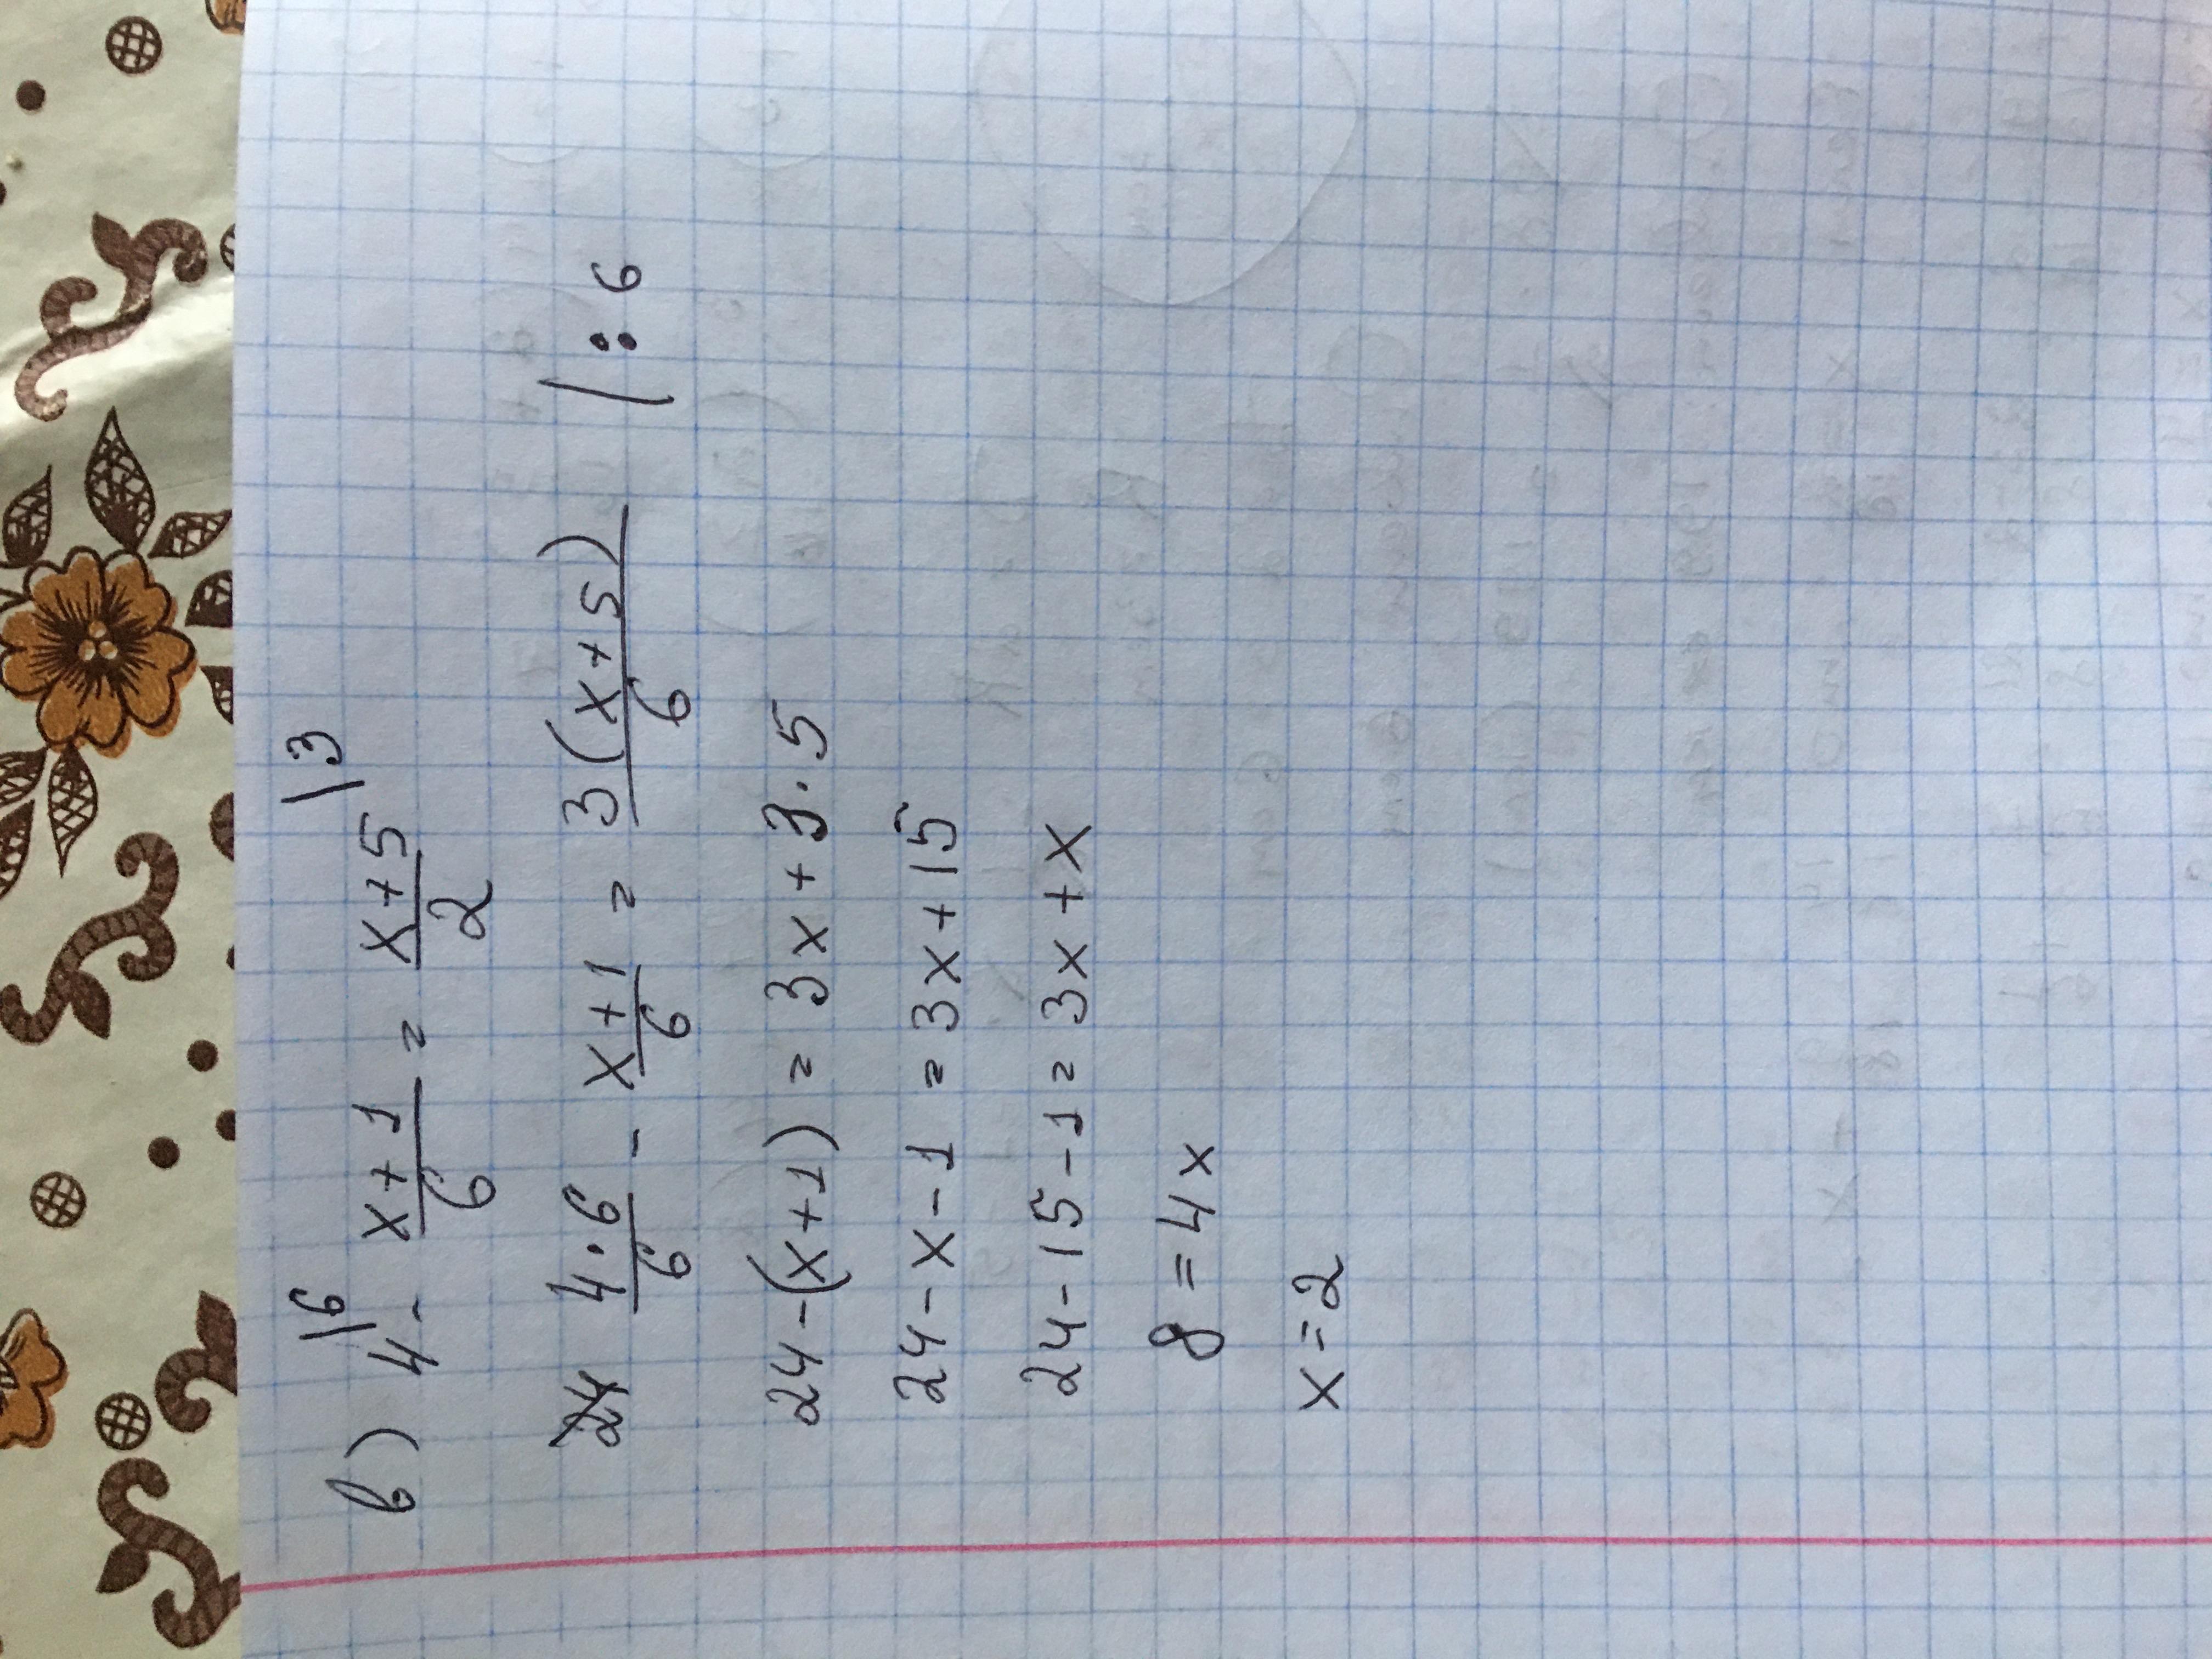 в) 4\6 - x+1/6 = x+5/2 \3
24 4·6/6 - x+1/6 = 3(x+5)/6 | : 6
24-(x+1) = 3x+3·5
24-x-1 = 3x+15
24-15-1 = 3x+x
8 = 4x
x=2